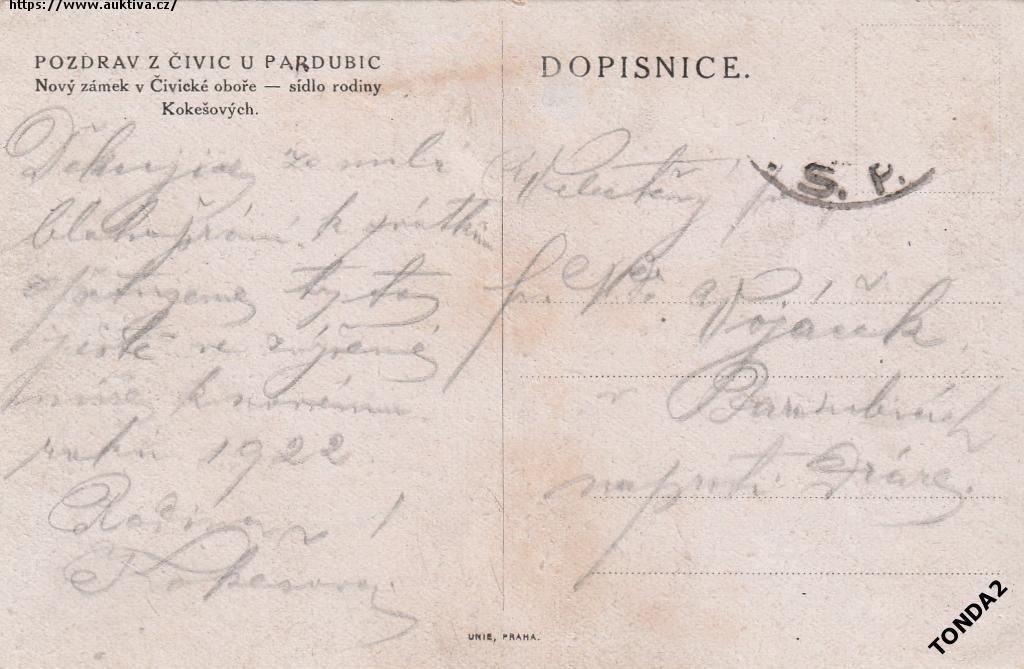 https://www.auktiva.cz/
POZDRAV Z ČIVIC U PARDUBIC
Nový zámek v Čivické oboře — sídlo rodiny
Kokešových.
DOPISNICE.
S. P.
Děkujíce za milé
blahopřání k svátkům
opětujeme tyto
ještě ve zvýšené
míře k novému
roku 1922
Rodina
Kokešova
Veletěný
Vojáček
v Pardubicích
naproti Dráze
UNIE, PRAHA.
TONDA2